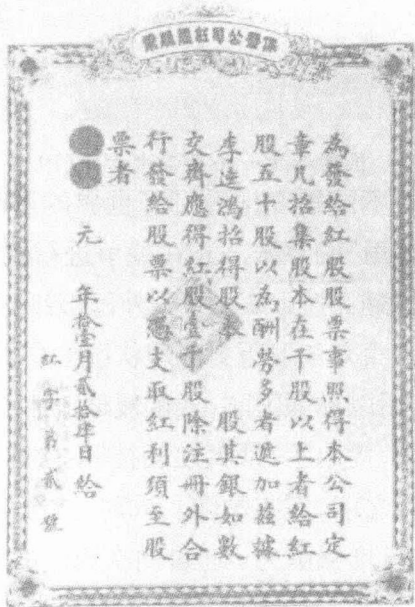 公司紅股
為發給紅股股票事照得本公司定
章凡招集股本在千股以上者給紅
股五十股以為酬勞多者遞加茲據
李達鴻招得股數 股其銀如數
交齊應得紅股壹千股除注冊外合
行發給股票以憑支取紅利須至股
票者
元 年拾壹月貳拾肆日給
紅字第貳號